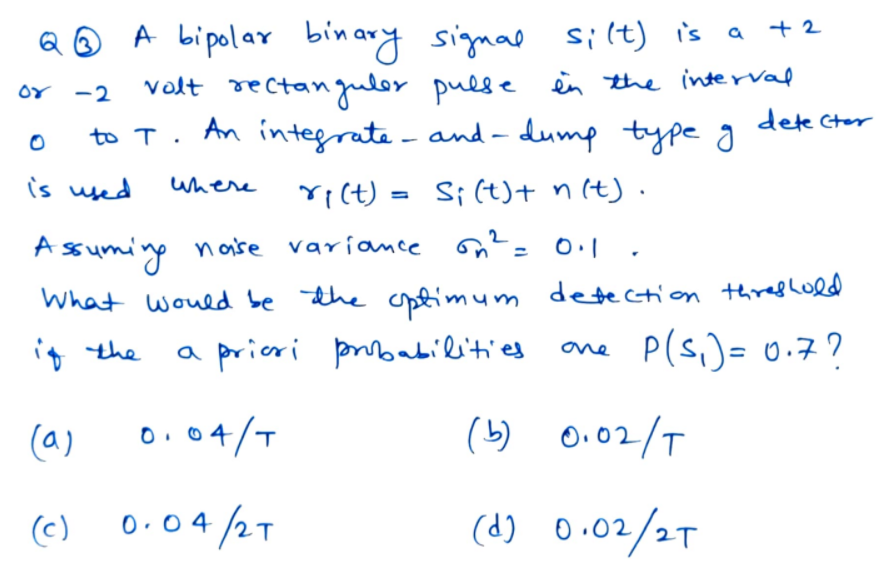 Q ③ A bipolar binary signal Si(t) is a +2
or -2 volt rectanguler pulse in the interval
0 to T. An integrate-and-dump type g detector
is used where r₁(t) = Si(t) + n(t).
Assuming noise variance σn² = 0.1.
What would be the optimum detection threshold
if the a priori probabilities are P(S₁) = 0.7?
(a) 0.04/T (b) 0.02/T
(c) 0.04/2T (d) 0.02/2T